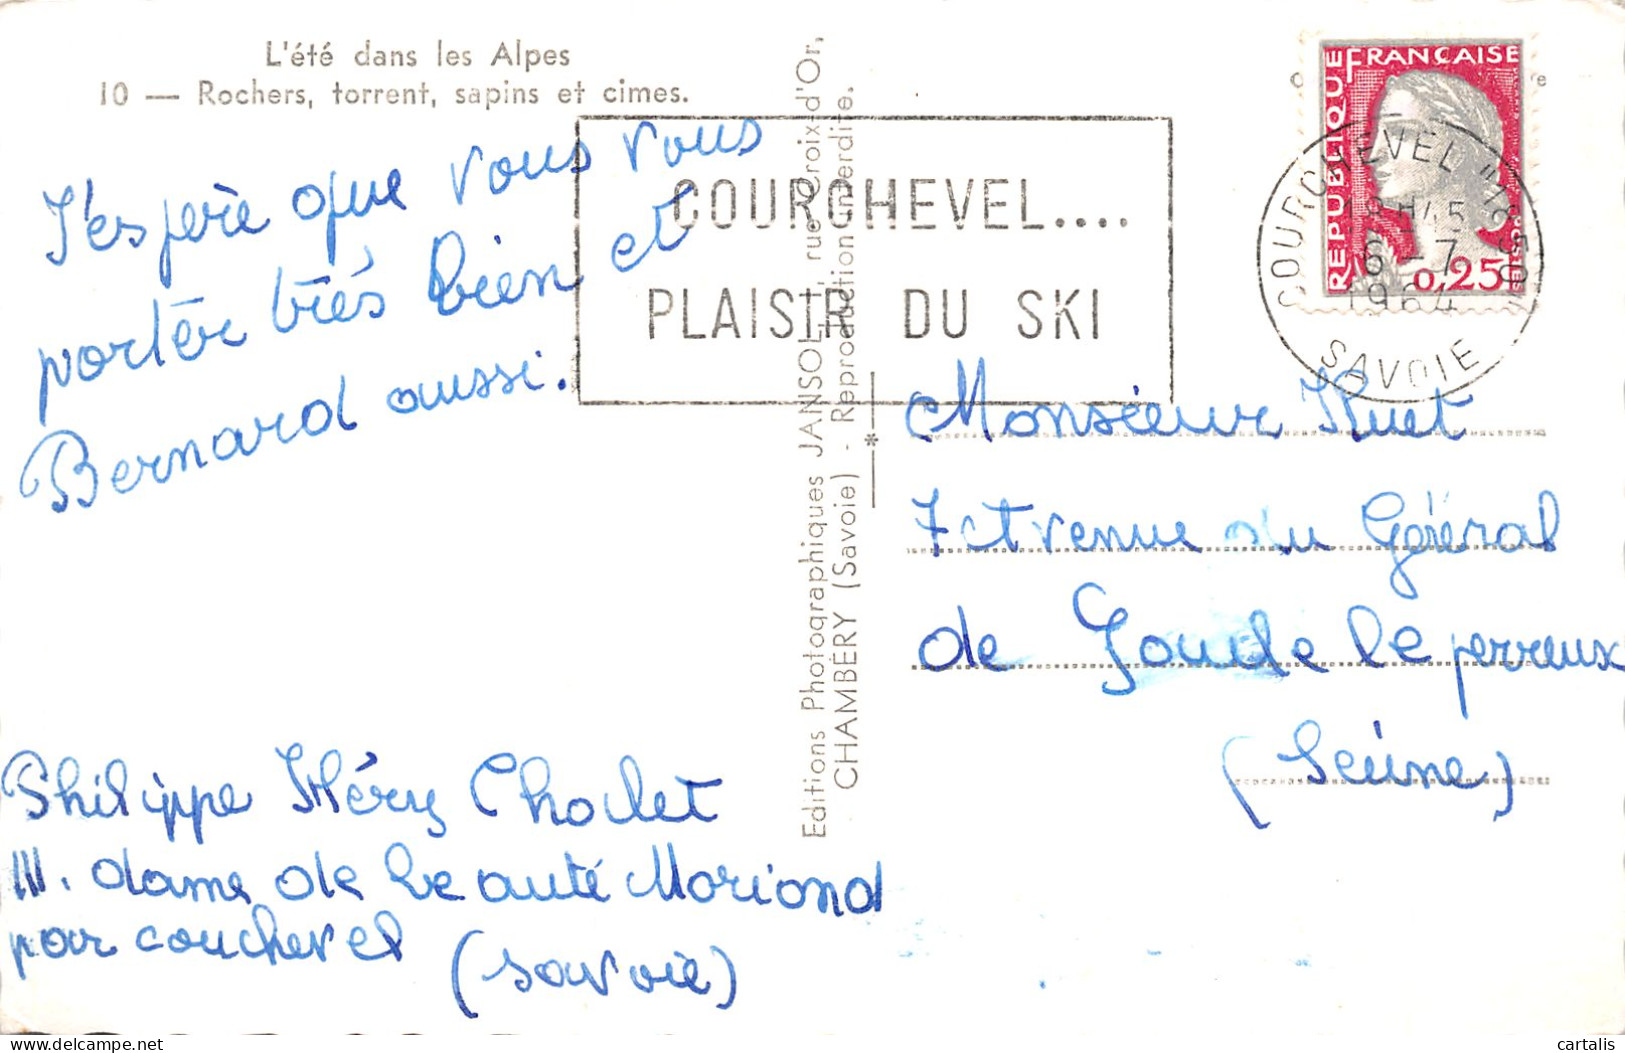 L'été dans les Alpes
10 — Rochers, torrent, sapins et cimes.
J'espère que vous vous
porter très bien et
Bernard aussi.
Philippe Héry Cholet
III. dame de beauté Moriond
par couchevel
(savoie)
Editions Photographiques JANSOL, rue Croix-d'Or,
CHAMBÉRY (Savoie) - Reproduction interdite.
COURCHEVEL....
PLAISIR DU SKI
RÉPUBLIQUE FRANÇAISE
0,25
COURCHEVEL "1850"
18H45
6-7
1964
SAVOIE
Monsieur Huet
7 Avenue du Général
de Goude le perreux
(Seine)
cartalis